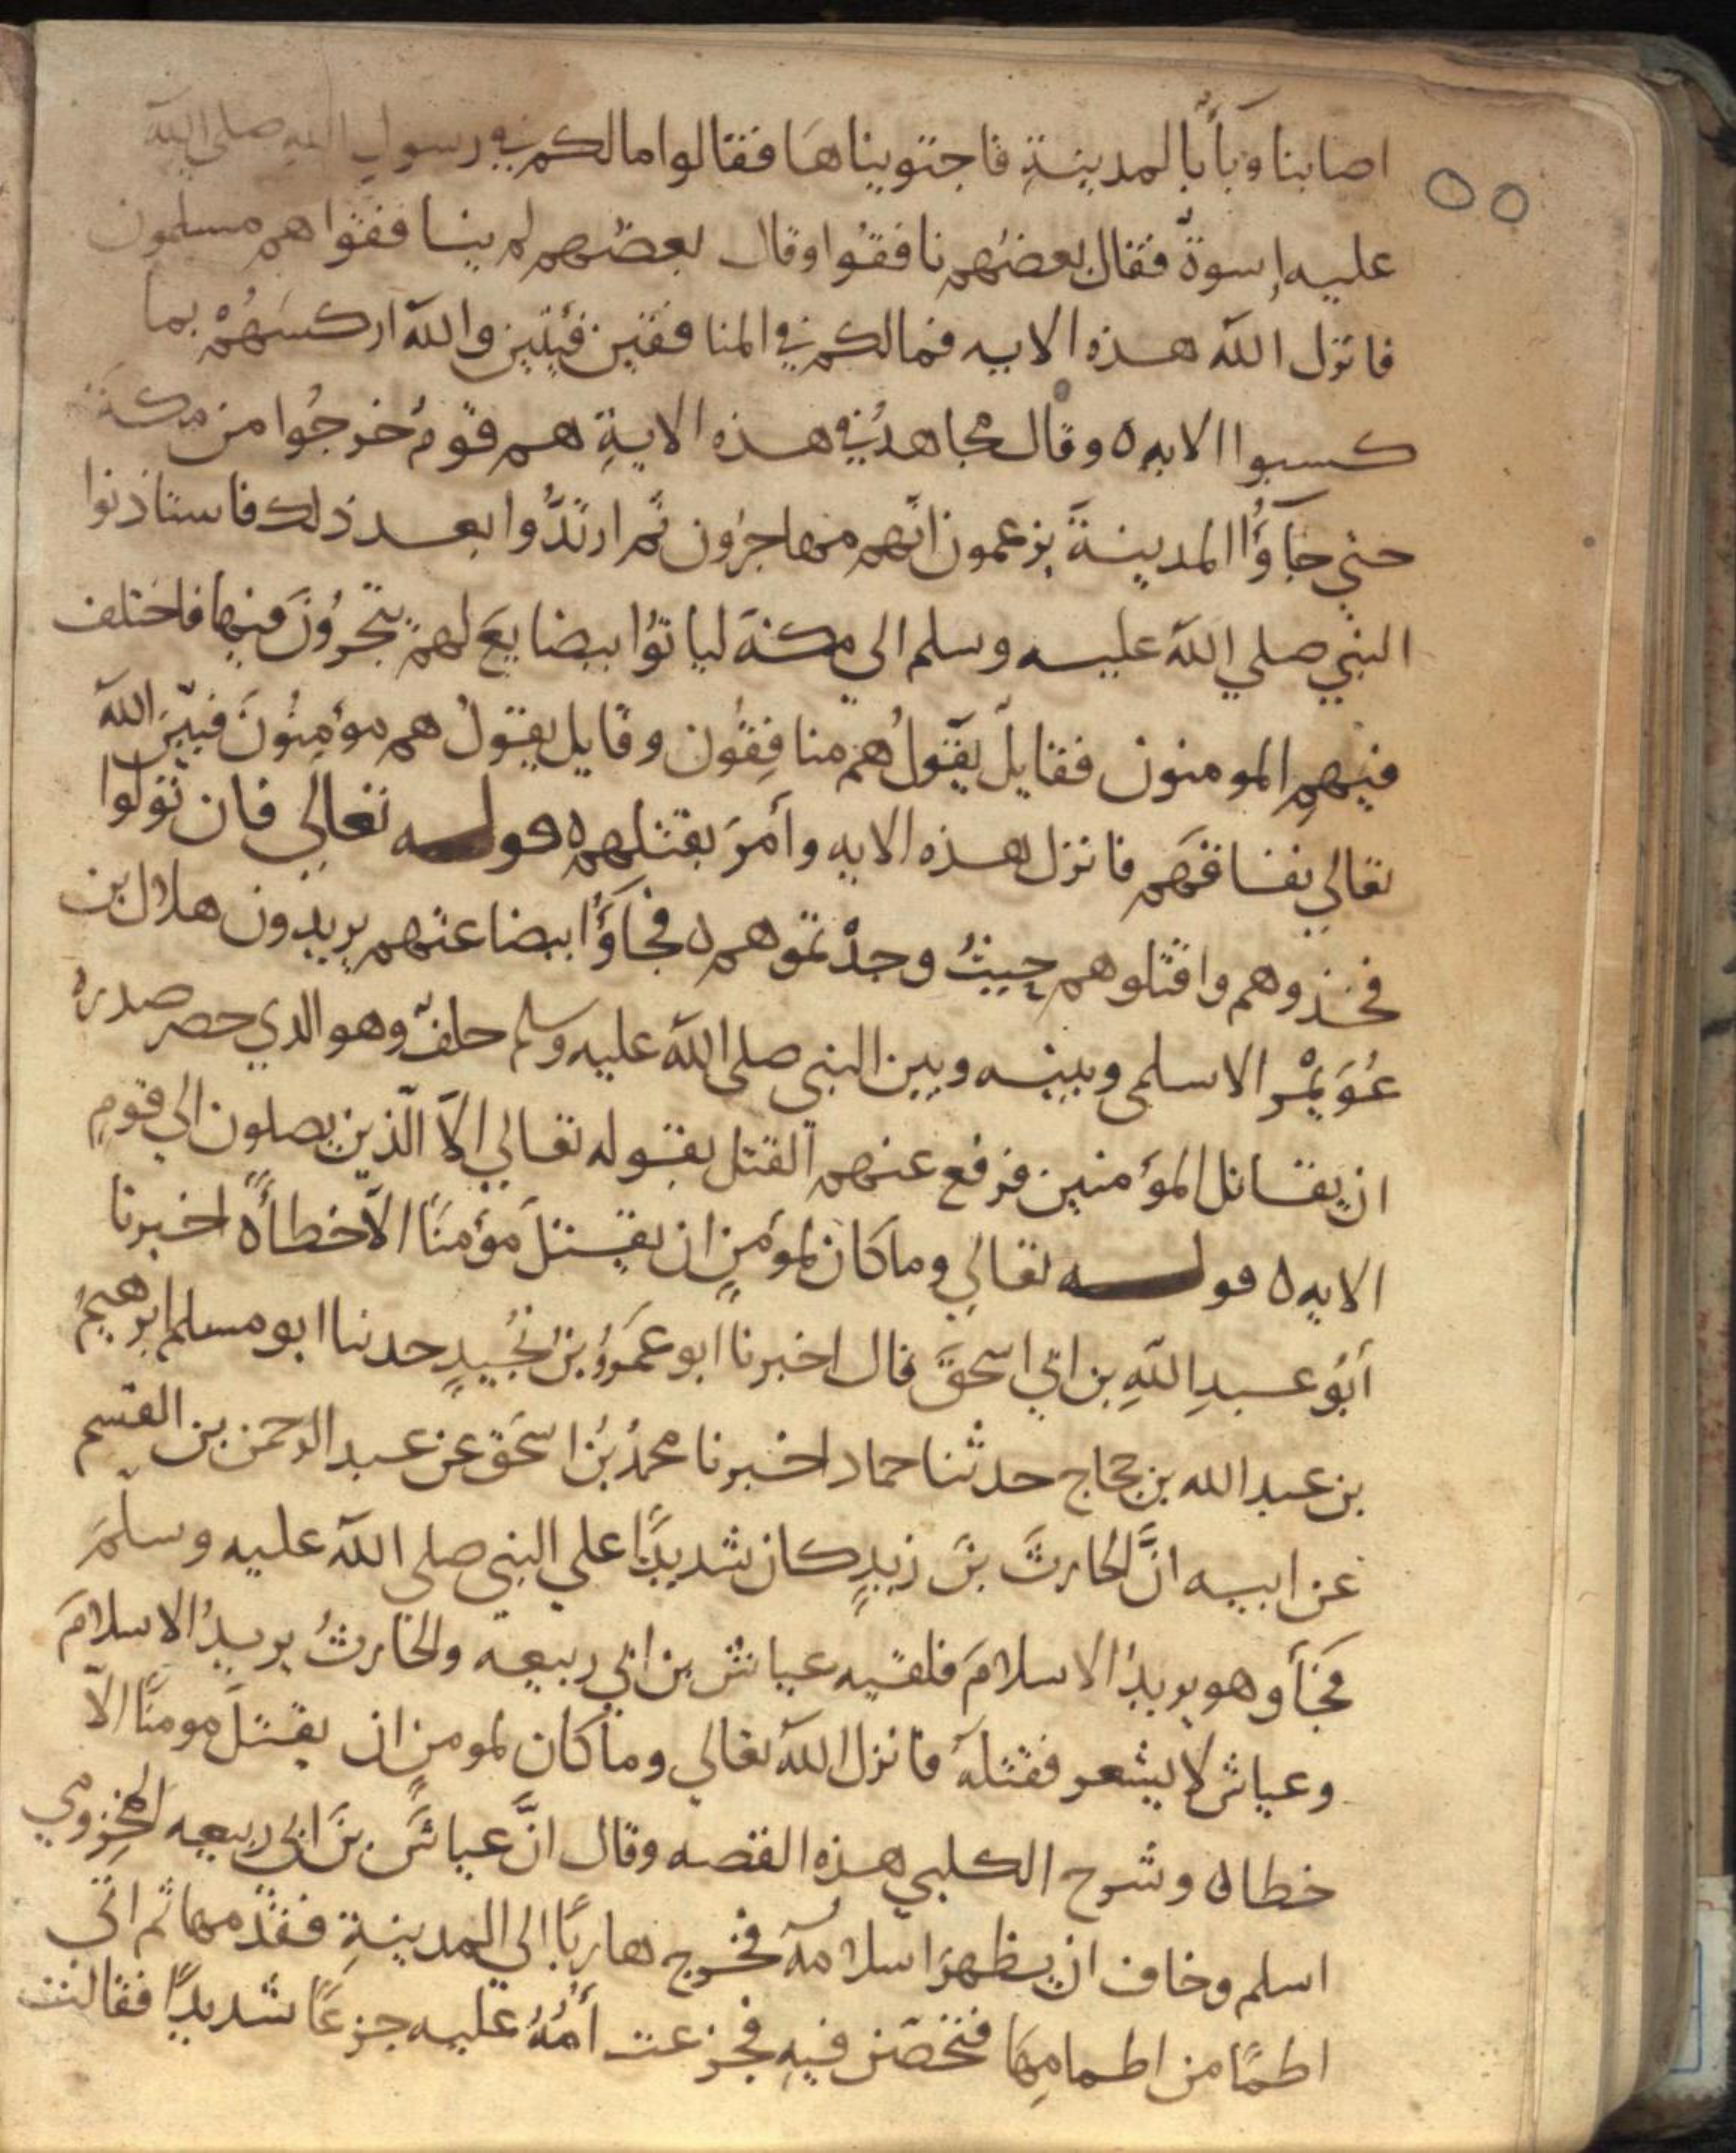 ٥٥
اصابنا وبأ بالمدينةِ فاجتويناها فقالوا مالكم في رسول الله صلى الله
عليه إسوةٌ فقال بعضُهم نافقوا وقال بعضُهم لم ينافقوا هم مسلمون
فانزل الله هذه الايه فمالكم في المنافقين فئتين والله اركسَهُمْ بما
كسبوا الايه ه وقال مجاهدٌ في هذه الايةِ هم قومٌ خرجُوا من مكةَ
حتى جآؤُا المدينةَ يزعمون انّهم مهاجرُون ثم ارتدُّوا بعد ذلك فاستاذنوا
النبي صلي الله عليه وسلم الى مكةَ لياتوُا ببضايعَ لهم يتجرُونَ فيها فاختلف
فيهم المومنون فقايلٌ يقولُ هم منافِقُون وقايل يقولُ هم مؤمِنُونَ فبيّن الله
تعالي نفاقَهم فانزل هذه الايه وأمرَ بقتلهم ه قوله تعالي فان تولوا
فخذوهم واقتلوهم حيثُ وجدْتموهم ه فجآؤُا ببضاعتهم يريدون هلال بن
عُوَيْمْر الاسلمى وبينه وبين النبي صلى الله عليه وسلم حلفٌ وهو الذي حصر صدرهُ
ان يقاتل المؤمنين فرفع عنهم القتل بقوله تعالي الاّ الّذين يصلون الى قومٍ
الايه ه قوله تعالي وما كان لمؤمنٍ ان يقتلَ مؤمنًا الاّ خطأً ه اخبرنا
أبُو عبدِ اللهِ بن ابي اسحقَ قال اخبرنا ابو عمرو بن نُجَيدٍ حدثنا ابو مسلم ابرهيمُ
بن عبد الله بن حجاج حدثنا حماد اخبرنا محمدُ بنُ اسحَق عن عبد الرحمن بن القسم
عن ابيه انَّ الحارثَ بنَ زيدٍ كان شديدًا على النبي صلي الله عليه وسلّمَ
فجأ وهو يريدُ الاسلامَ فلقيه عياش بن ابي ربيعه والحارثُ يريدُ الاسلامَ
وعياش لا يشعر فقتلهُ فانزل الله تعالي وما كان لمومنٍ ان يقتلَ مومنًا الاّ
خطا ه وشرح الكلبي هذه القصه وقال انَّ عياشَ بنَ ابي ربيعه المخزومي
اسلم وخاف ان يظهرَ اسلامهُ فخرج هاربًا الي المدينةِ فقدمها ثم اتي
اطمًا من اطامِهَا فتحصّن فيهِ فجزعت أمُّهُ عليه جزعًا شديدًا فقالت